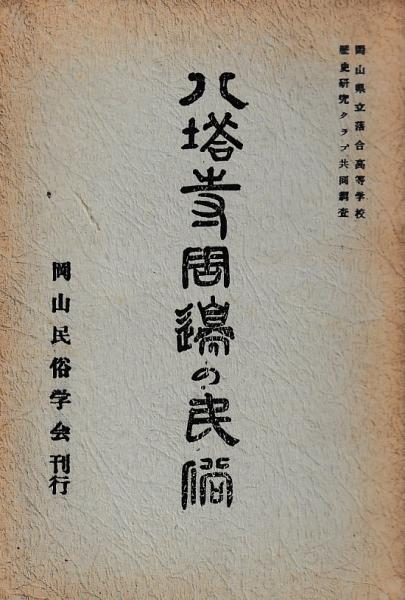 岡山県立落合高等学校
歴史研究クラブ共同調査
八塔寺周邊の民俗
岡山民俗学会刊行